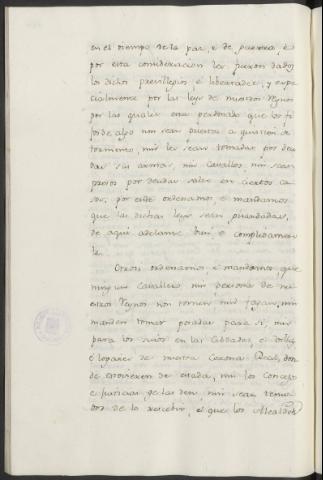 en el tiempo de la paz, e de guerra, e
por esta consideracion les fueron dados
los dichos previllegios é libertades, y espe
cialmente por las leys de nuestros Regnos
por las quales esta hordenado que los fi
jos de algo non sean puestos a question de
tormento, nin les sean tomadas por deu
das sus armas, nin cavallos, nin sean
presos por deudas salvo en ciertos ca
sos, por ende ordenamos e mandamos
que las dichas leys sean guardadas,
de aqui adelante bien e complidamen
te.
Otrosi ordenamos e mandamos, que
ningun cavallero nin persona de nu
estros Regnos non tomen nin fagan, nin
manden tomar posadas para si, nin
para los suios en las cibdades, e villas
é logares de nuestra Corona Real, don
de estovieren de estada, nin los Concejos
e justicias ge las den nin sean tenu
dos de lo rescebir, e que los Alcaldes